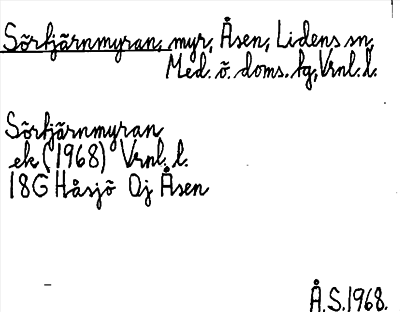 Sörtjärnmyran, myr, Åsen, Lidens sn,
Med. ö. doms. tg, Vrnl. l.
Sörtjärnmyran
ek (1968) Vrnl. l.
18G Håsjö 0j Åsen
Å.S. 1968.